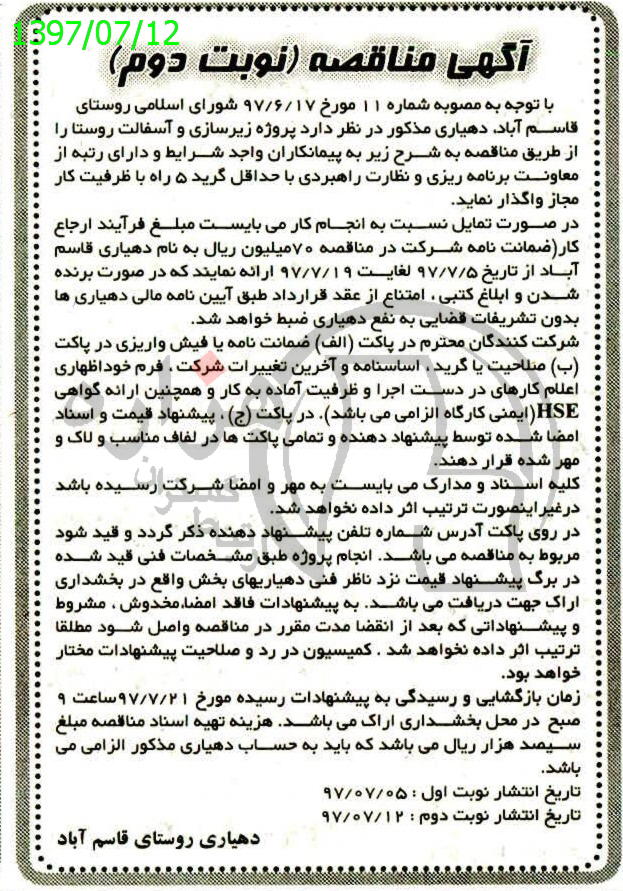 1397/07/12
آگهی مناقصه (نوبت دوم)
با توجه به مصوبه شماره ۱۱ مورخ ۹۷/۶/۱۷ شورای اسلامی روستای
قاسم آباد، دهیاری مذکور در نظر دارد پروژه زیرسازی و آسفالت روستا را
از طریق مناقصه به شرح زیر به پیمانکاران واجد شرایط و دارای رتبه از
معاونت برنامه ریزی و نظارت راهبردی با حداقل گرید ۵ راه با ظرفیت کار
مجاز واگذار نماید.
در صورت تمایل نسبت به انجام کار می بایست مبلغ فرآیند ارجاع
کار(ضمانت نامه شرکت در مناقصه ۷۰میلیون ریال به نام دهیاری قاسم
آباد از تاریخ ۹۷/۷/۵ لغایت ۹۷/۷/۱۹ ارائه نمایند که در صورت برنده
شدن و ابلاغ کتبی، امتناع از عقد قرارداد طبق آیین نامه مالی دهیاری ها
بدون تشریفات قضایی به نفع دهیاری ضبط خواهد شد.
شرکت کنندگان محترم در پاکت (الف) ضمانت نامه یا فیش واریزی در پاکت
(ب) صلاحیت یا گرید، اساسنامه و آخرین تغییرات شرکت، فرم خوداظهاری
اعلام کارهای در دست اجرا و ظرفیت آماده به کار و همچنین ارائه گواهی
HSE(ایمنی کارگاه الزامی می باشد). در پاکت (ج)، پیشنهاد قیمت و اسناد
امضا شده توسط پیشنهاد دهنده و تمامی پاکت ها در لفاف مناسب و لاک و
مهر شده قرار دهند.
کلیه اسناد و مدارک می بایست به مهر و امضا شرکت رسیده باشد
درغیراینصورت ترتیب اثر داده نخواهد شد.
در روی پاکت آدرس شماره تلفن پیشنهاد دهنده ذکر گردد و قید شود
مربوط به مناقصه می باشد. انجام پروژه طبق مشخصات فنی قید شده
در برگ پیشنهاد قیمت نزد ناظر فنی دهیاریهای بخش واقع در بخشداری
اراک جهت دریافت می باشد. به پیشنهادات فاقد امضا،مخدوش، مشروط
و پیشنهاداتی که بعد از انقضا مدت مقرر در مناقصه واصل شود مطلقا
ترتیب اثر داده نخواهد شد. کمیسیون در رد و صلاحیت پیشنهادات مختار
خواهد بود.
زمان بازگشایی و رسیدگی به پیشنهادات رسیده مورخ ۹۷/۷/۲۱ساعت ۹
صبح در محل بخشداری اراک می باشد. هزینه تهیه اسناد مناقصه مبلغ
سیصد هزار ریال می باشد که باید به حساب دهیاری مذکور الزامی می
باشد.
تاریخ انتشار نوبت اول : ۹۷/۰۷/۰۵
تاریخ انتشار نوبت دوم : ۹۷/۰۷/۱۲
دهیاری روستای قاسم آباد